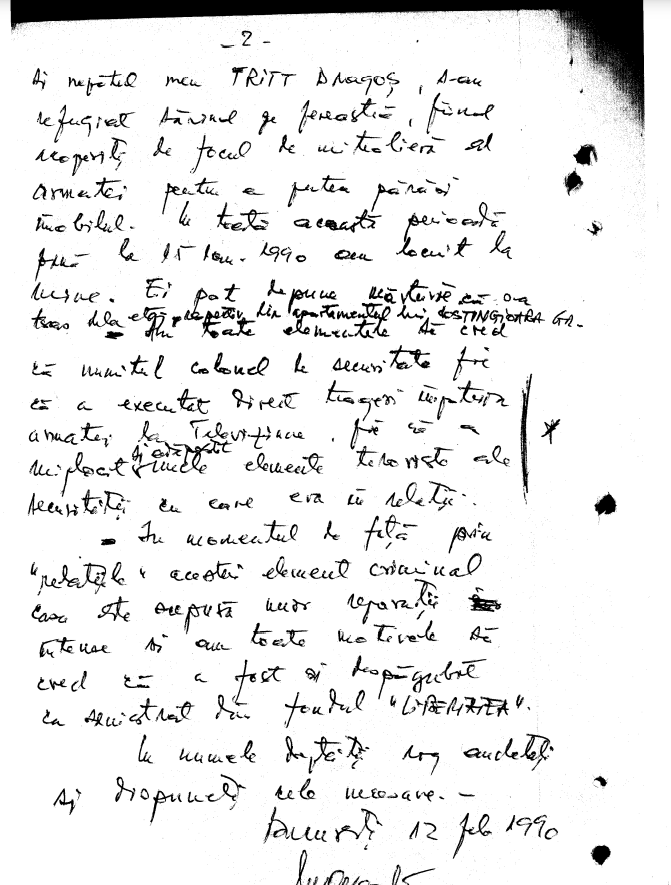 - 2 -
și nepotul meu TRITT Dragoș, s-au
refugiat sărind pe fereastră, fiind
acoperiți de focul de mitralieră al
armatei pentru a putea părăsi
imobilul. În toată această perioadă
până la 15 Ian. 1990 au locuit la
mine. Ei pot depune mărturie că s-a
tras de la etaj respectiv din apartamentul lui COSTINGIOARA GR.
- Am toate elementele să cred
că numitul colonel de securitate fie
că a executat direct trageri împotriva
armatei la Televiziune, fie că a
mijlocit și adăpostit unele elemente teroriste ale
securității cu care era în relații.
- În momentul de față prin
"relațiile" acestui element criminal
casa este supusă unor reparații
intense și am toate motivele să
cred că a fost și despăgubit
ca sinistrat din fondul "LIBERTATEA".
În numele dreptății rog anchetați
și dispuneți cele necesare. -
București 12 feb 1990